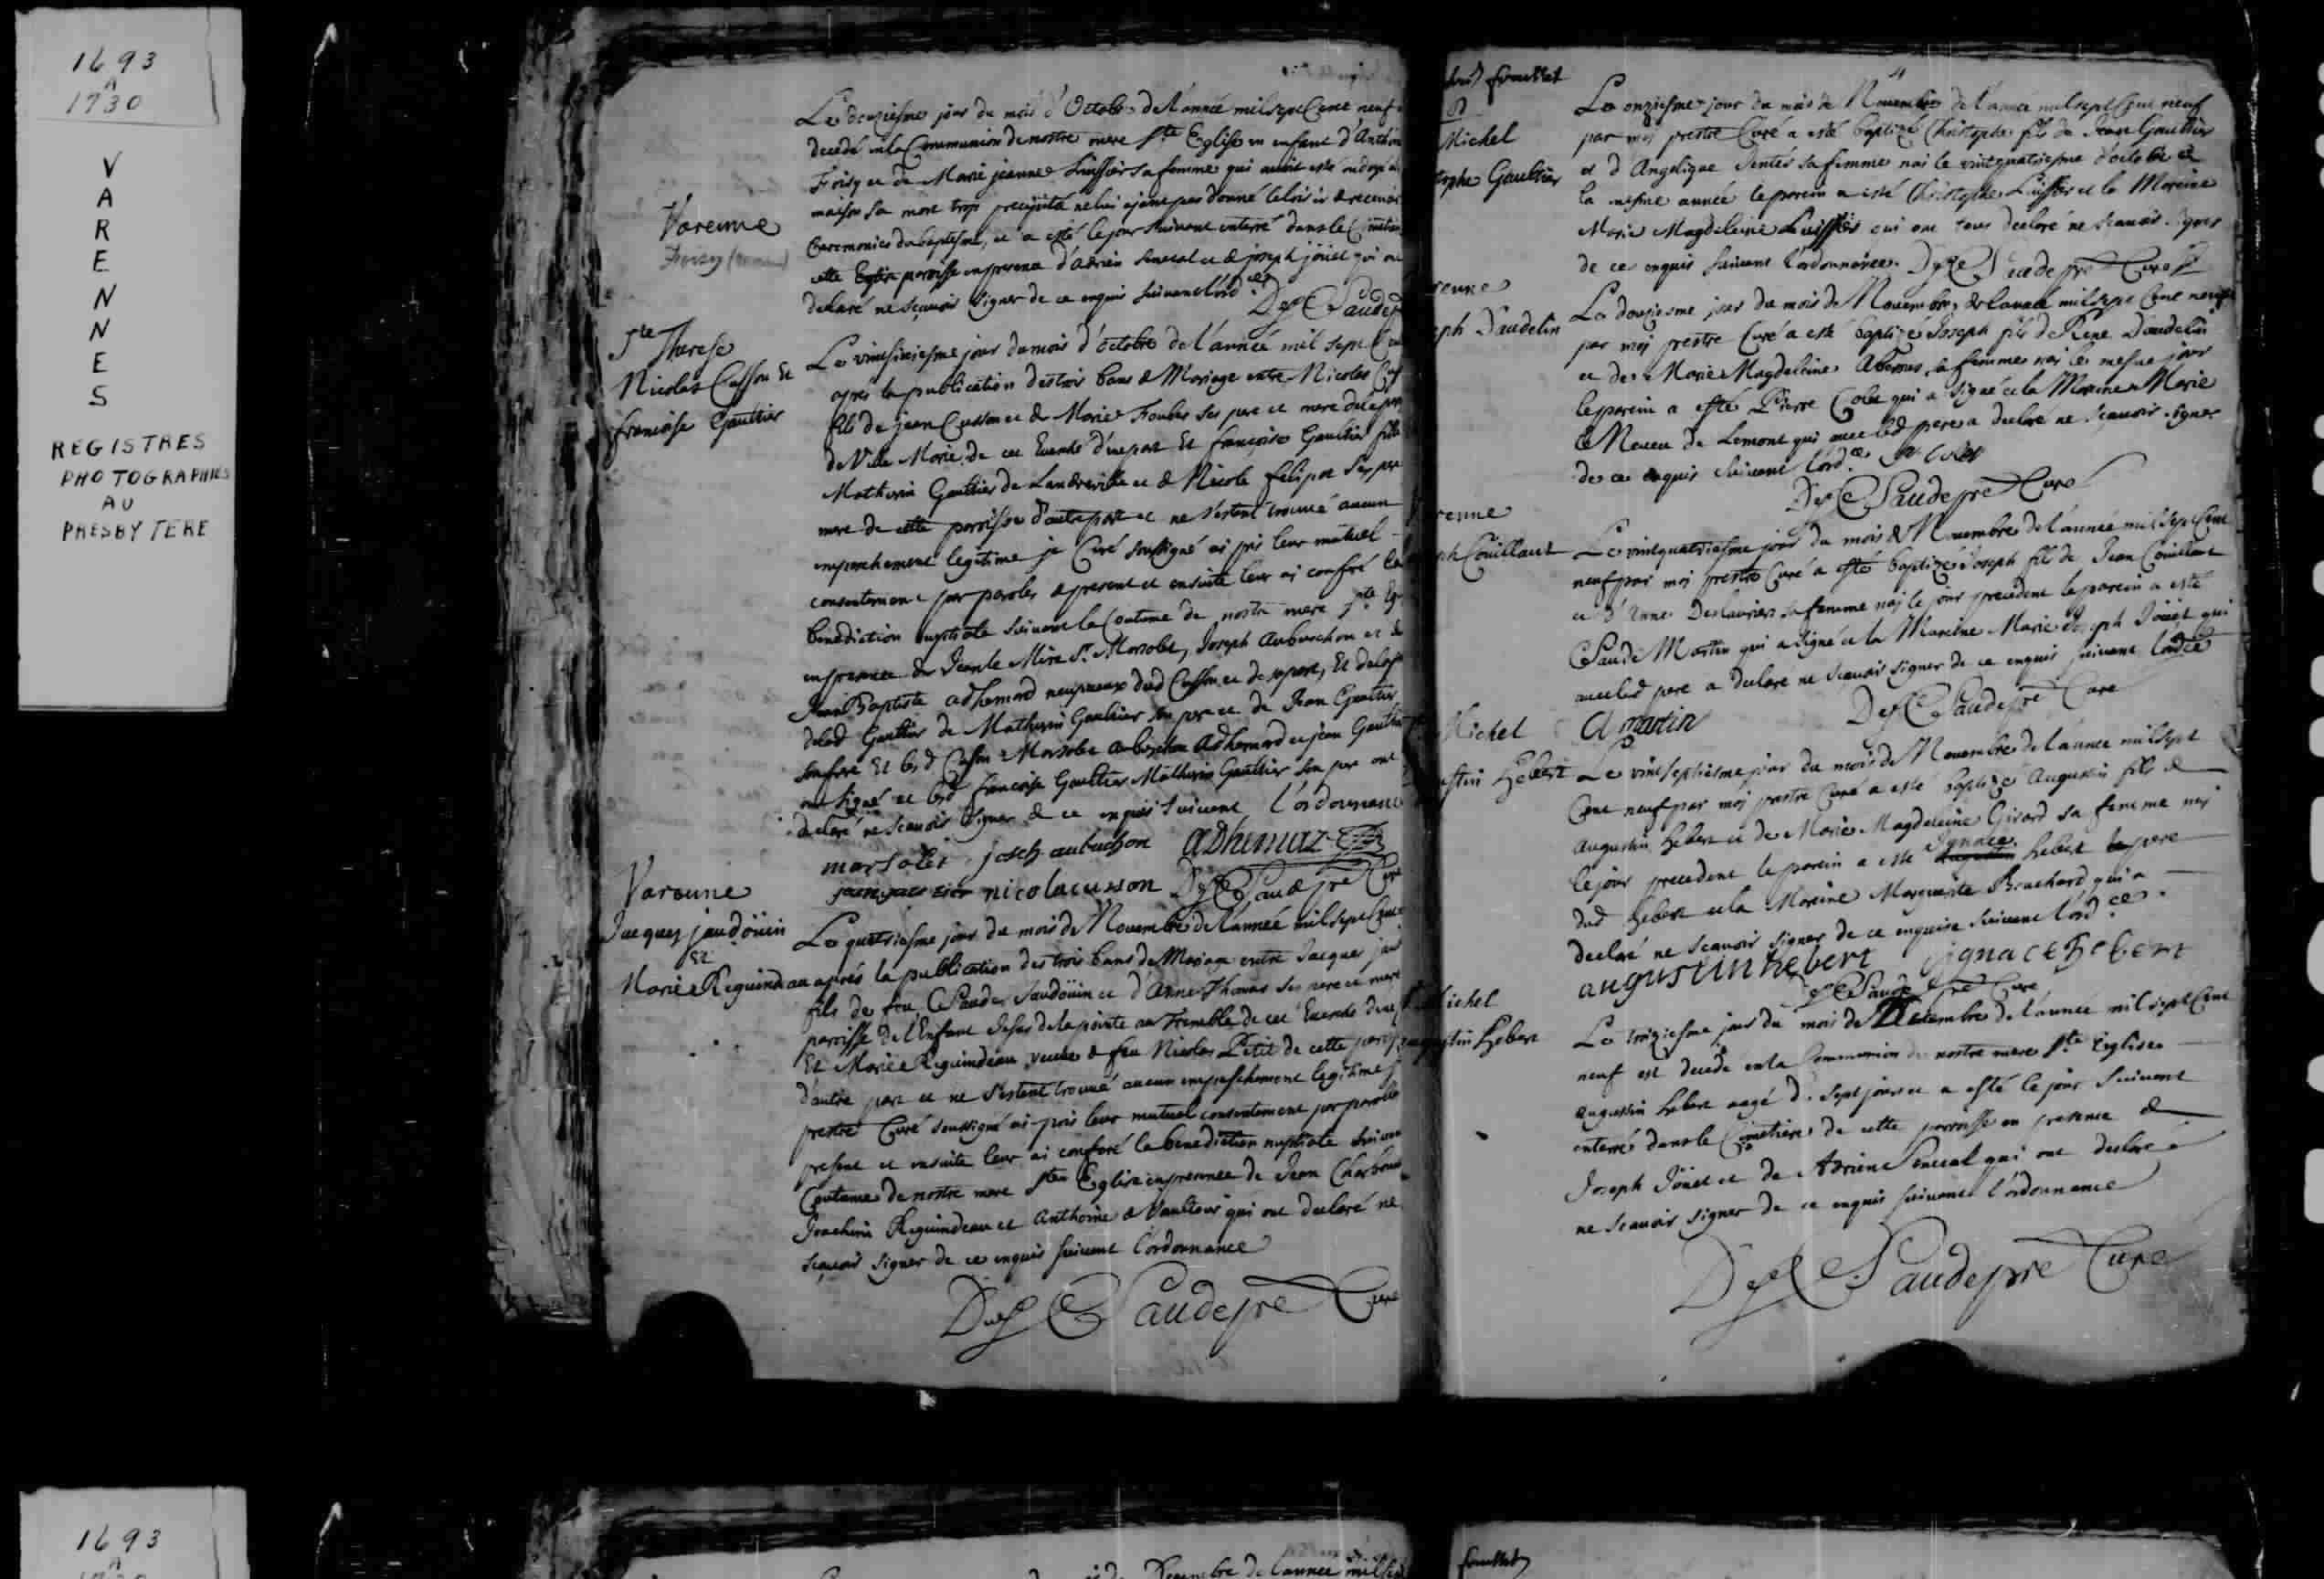 1693
A
1730
V
A
R
E
N
N
E
S
REGISTRES
PHOTOGRAPHIES
AU
PRESBYTERE
Le douziesme jour du mois d'Octobre de l'année mil sept Cent neuf
decedé en la Communion de nostre mere Ste Eglise un enfant d'Anthoi
Varenne
Foisy et de Marie jeanne Lussier sa femme qui avoit esté ondoyé à
maison sa mort trop precipitée ne lui ajant pas donné le loisir de recevoir
Ceremonies du baptesme, et a esté le jour suivant enterré dans le Cimetiere
Foisy
cette Eglise paroisse en presence d'Adrien Senecal et de joseph joüet qui on
declaré ne sçavoir signer de ce enquis suivant l'ord.ce
Ste Therese
Nicolas Cusson Et
francoise Gaultier
Le vintsixiesme jour du mois d'Octobre de l'année mil sept Cen
aprés la publication des trois bans de Mariage entre Nicolas Cus
fils de jean Cusson et de Marie Foubert ses pere et mere de la par
de Ville Marie de cet Evesché d'une part Et françoise Gaultier fille
Mathurin Gaultier de Landreville et de Nicole Felipot ses per
mere de cette paroisse d'autre part et ne s'estant trouvé aucun
empeschement legitime je Curé soussigné ai pris leur mutuel
consentement par paroles de present et ensuite leur ai conferé la
benediction nuptiale suivant la Coutume de nostre mere Ste Eg
en presence de Jean le Mire Sr. Marsolet, Joseph Aubuschon et de
Jean Baptiste adhemard nepveux dud Cusson et de sa part, Et de la
delad Gaultier de Mathurin Gaultier son pere et de Jean Gaultier
son frere Et lesd Cusson Marsolet aubuschon adhemard et jean Gaultier
ont signé et lad francoise Gaultier Mathurin Gaultier son pere ont
declaré ne scavoir signer de ce enquis suivant l'ordonnance
marsolet joseph aubuchon adhemar
nicolacusson
Varenne
Jacques jaudöüin
Et
Marie Reguindeau
Le quatriesme jour du mois de Novembre de l'année mil sept Cent
aprés la publication des trois bans de Mariage entre Jacques jau
fils de feu Claude Jaudöüin et d'Anne Thomas ses pere et mere
paroisse de l'Enfant Jesus de la pointe au Tremble de cet Evesché d'une p
Et Marie Reguindeau veuve de feu Nicolas Petit de cette parois
d'autre part et ne s'estant trouvé aucun empeschement legitime j
prestre Curé soussigné ai pris leur mutuel consentement par paroles
present et ensuite leur ai conferé la benediction nuptiale suivan
Coutume de nostre mere Ste Eglise en presence de Jean Charbonn
Joachim Reguindeau et Anthoine de Vaultour qui ont declaré ne
sçavoir signer de ce enquis suivant l'ordonnance
Curé
4
Michel
stophe Gaultier
Le onziesme jour du mois de Novembre de l'année mil sept Cent neuf
par moj prestre Curé a esté baptizé Christophe fils de Jean Gaultier
et d'Angelique Sentés sa femme nai le vintquatriesme d'octobre de
la mesme année le parein a esté Christophe Lussier et la Mareine
Marie Magdeleine Lussier qui ont tous declaré ne scavoir signer
de ce enquis suivant l'ordonnance.
renne
eph Daudelin
Le douziesme jour du mois de Novembre de l'année mil sept Cent neuf
par moj prestre Curé a esté baptizé Joseph fils de René Daudelin
et de Marie Magdeleine Abernes sa femme naj ce mesme jour
le parein a esté Pierre Colet qui a signé et la Mareine Marie
Le Neveu de Lemont qui avec led pere a declaré ne scavoir signer
de ce enquis suivant l'ord.ce
Curé
renne
ph Couillaut
Le vintquatriesme jour du mois de Novembre de l'année mil sept Cent
neuf par moj prestre Curé a esté baptizé Joseph fils de Jean Couillaut
et d'Anne Deslauriers sa femme naj le jour precedent le parein a esté
Claude Martin qui a signé et la Mareine Marie Joseph Joüet qui
avec led pere a declaré ne sçavoir signer de ce enquis suivant l'ord.ce
Curé
Michel
C martin
ustin hebert
Le vintseptiesme jour du mois de Novembre de l'année mil sept
Cent neuf par moj prestre Curé a esté baptizé Augustin fils de
Augustin hebert et de Marie Magdeleine Girard sa femme naj
le jour precedent le parein a esté Ignace hebert pere
dud hebert et la Mareine Marguerite Bruchard qui a
declaré ne scavoir signer de ce enquise suivant l'ord.ce
augustin hebert ignace hebert
Curé
Michel
ustin hebert
Le troiziesme jour du mois de Decembre de l'année mil sept Cent
neuf est decedé en la Communion de nostre mere Ste Eglise
augustin hebert aagé de sept jours et a esté le jour suivant
enterré dans le Cimetiere de cette paroisse en presence de
Joseph Joüet et de Adrien Senecal qui ont declaré
ne scavoir signer de ce enquis suivant l'ordonnance
Curé
1693
A